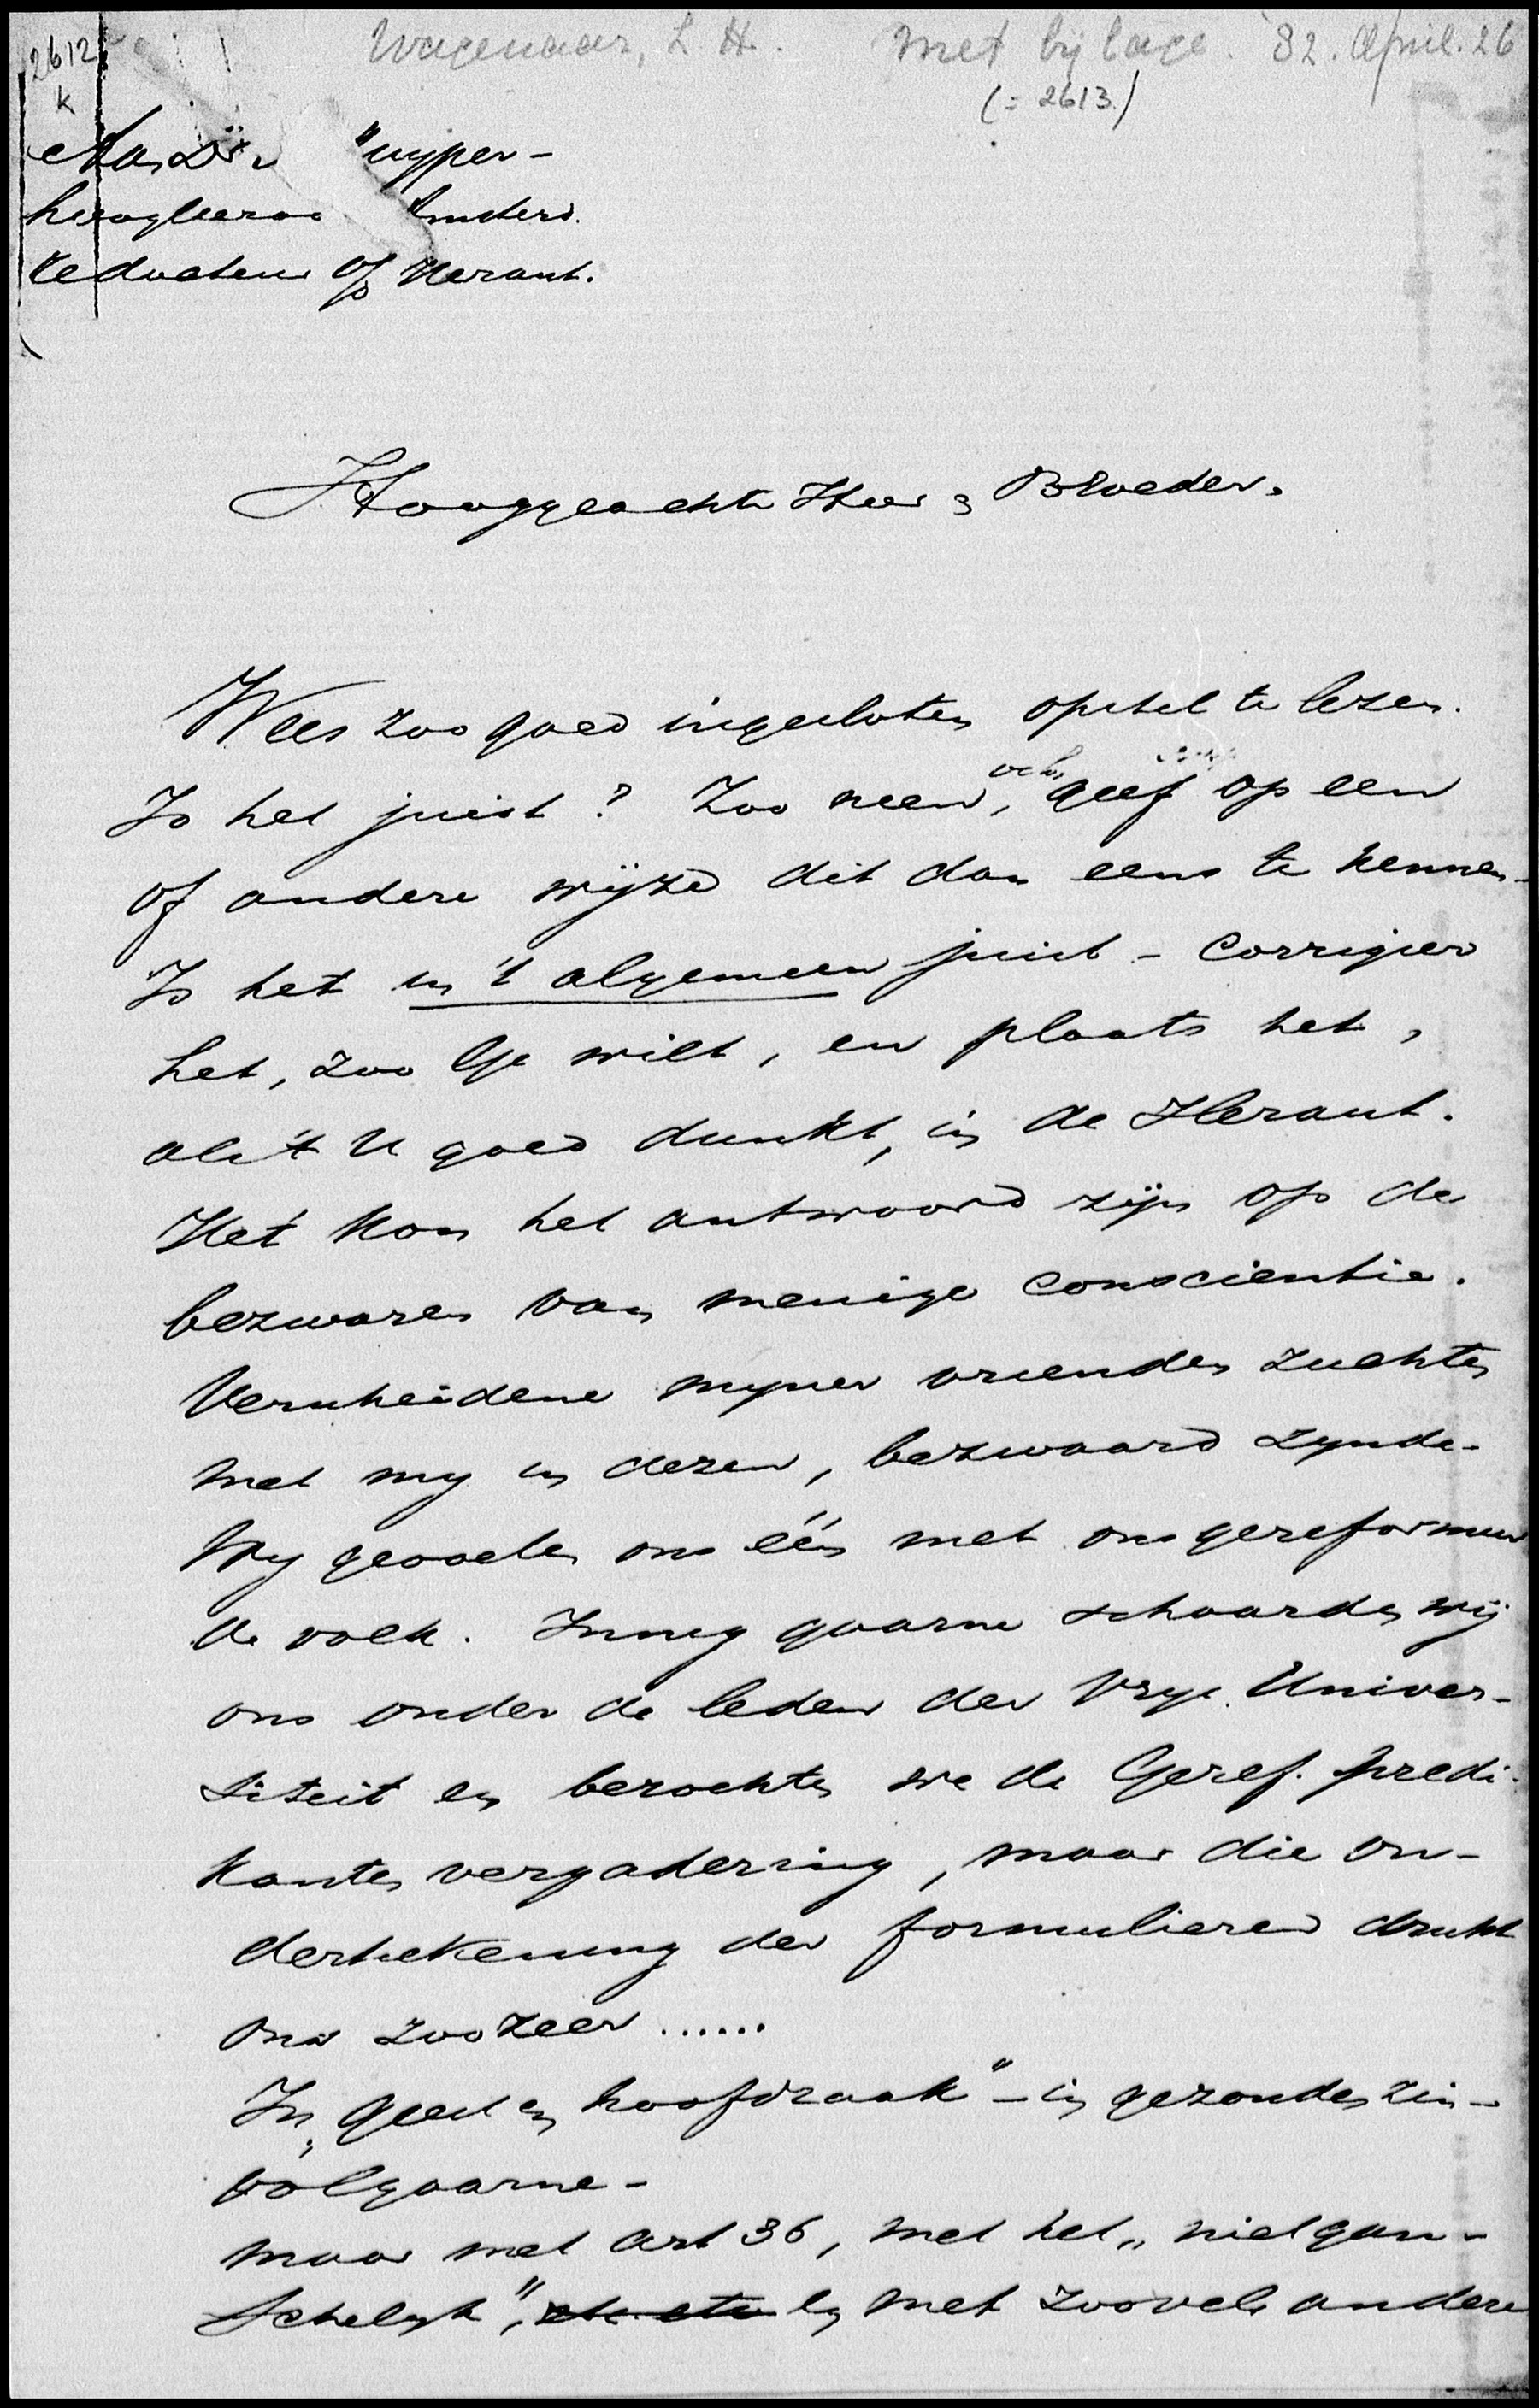 Wagenaar, L. H. met bijlage. 82. April. 26
(= 2613)
2612
k
Aan Dr. Kuyper -
hoogleeraar Amsterd.
Redacteur of Heraut.
Hooggeachte Heer & Broeder,
Wees zoo goed ingesloten opstel te lezen.
Is het juist? Zoo neen, och, geef op een
of andere wijze dit dan eens te kennen -
Is het in 't algemeen juist - corrigeer
het, zoo Ge wilt, en plaats het,
als 't U goed dunkt, in de Heraut.
Het kon het antwoord zijn op de
bezwaren van menige conscientie.
Verscheidene mijner vrienden zuchten
met my in dezen, bezwaard zynde.
Wy gevoelen ons één met ons gereformeer
de volk. Innig gaarne schaarden wij
ons onder de leden der Vrye Univer-
siteit en bezochten we de Geref. predi-
kanten vergadering, maar die on-
derteekening der formulieren drukt
ons zoozeer ......
In "geest en hoofdzaak" - in gezonden zin -
volgaarne -
maar met art 36, met het "niet gan-
schelyk", en met zoovele andere